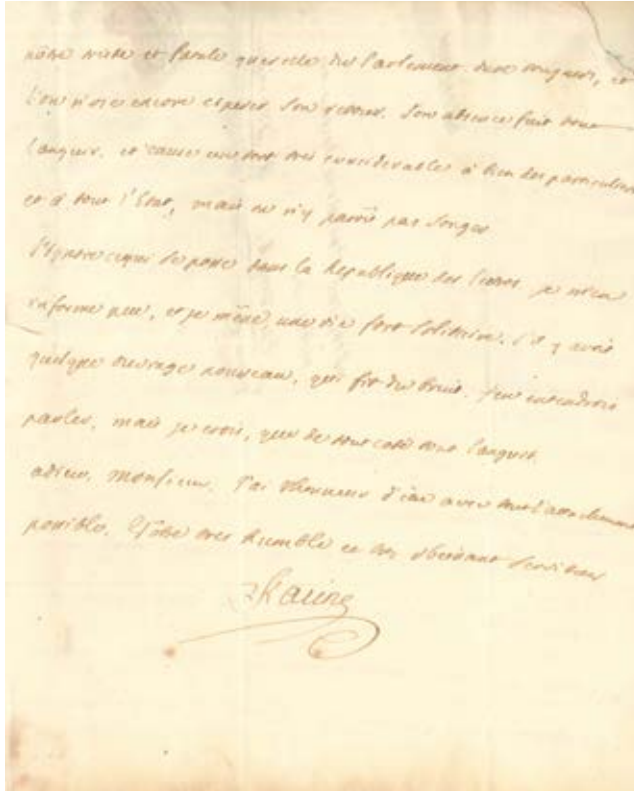 nôtre triste et fatale querelle du Parlement dure toujours, et
l'on n'ose encore esperer son retour. son absence fait tout
languir, et cause un tort tres considerable à bien des particuliers
et à tout l'Etat, mais on n'y paroît pas songer
J'ignore ce qui se passe dans la Republique des lettres. je m'en
informe peu, et je mène une vie fort solitaire. s'il y avoit
quelque ouvrage nouveau, qui fit du bruit, j'en entendrois
parler, mais je crois, que de tout coté tout languit.
adieu, monsieur. J'ai l'honneur d'être avec tout l'attachement
possible, Vôtre tres humble et tres obeissant serviteur
Racine